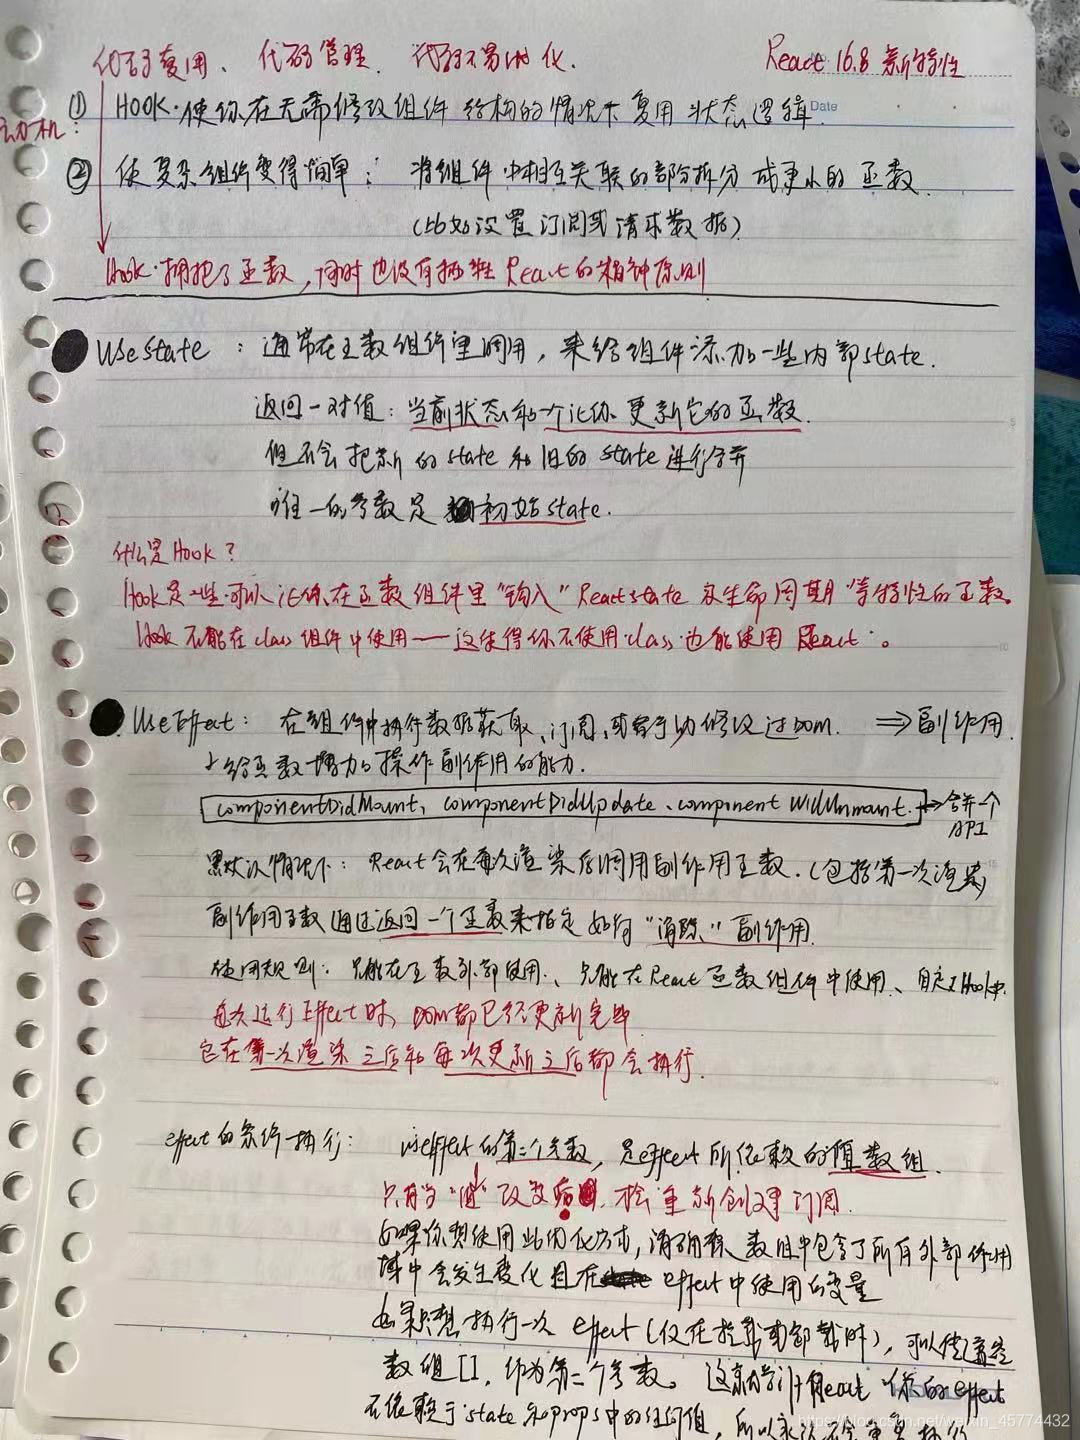 代码复用、代码管理、代码不易优化. React 16.8 新特性
Date
动机:
① HOOK·使你在无需修改组件结构的情况下复用状态逻辑.
② 使复杂组件变得简单: 将组件中相互关联的部分拆分成更小的函数.
(比如设置订阅或请求数据)
Hook·拥抱了函数, 同时也没有牺牲React的精神原则
UseState : 通常在函数组件里调用, 来给组件添加一些内部state.
返回一对值: 当前状态和一个让你更新它的函数.
但不会把新的state和旧的state进行合并
唯一的参数是初始state.
什么是Hook?
Hook是一些可以让你在函数组件里“钩入”React state及生命周期“等特性的函数。
Hook不能在class组件中使用——这使得你不使用class也能使用React。
UseEffect: 在组件中执行数据获取、订阅、或者手动修改过DOM. ⇒副作用.
给函数增加操作副作用的能力.
componentDidMount、componentDidUpdate、componentWillUnmount. → 合并一个
API
默认情况下: React会在每次渲染后调用副作用函数.(包括第一次渲染)
副作用函数通过返回一个函数来指定如何“清除”副作用.
使用规则: 只能在函数外部使用、只能在React函数组件中使用、自定义Hook中.
每次运行Effect时, DOM都已经更新完毕
它在第一次渲染之后和每次更新之后都会执行.
effect的条件执行: useEffect的第二个参数, 是effect所依赖的值数组.
只有当“值”改变后, 才会重新创建订阅.
如果你要使用此优化方式, 请确保数组中包含了所有外部作用
域中会发生变化且在effect中使用的变量
如果只想执行一次effect(仅在挂载或卸载时), 可以传递空
数组[], 作为第二个参数。这就告诉React你的effect
不依赖于state和props中的任何值, 所以永远不会重复执行
https://blog.csdn.net/weixin_45774432